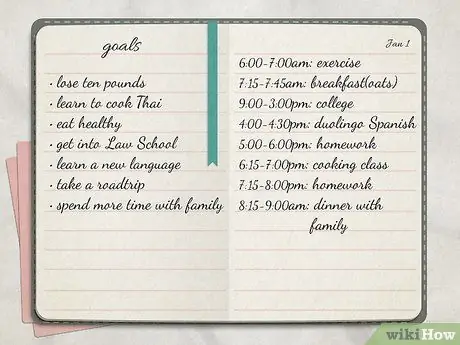 goals
• lose ten pounds
• learn to cook Thai
• eat healthy
• get into Law School
• learn a new language
• take a roadtrip
• spend more time with family
Jan 1
6:00-7:00am: exercise
7:15-7:45am: breakfast(oats)
9:00-3:00pm: college
4:00-4:30pm: duolingo Spanish
5:00-6:00pm: homework
6:15-7:00pm: cooking class
7:15-8:00pm: homework
8:15-9:00am: dinner with
family
wikiHow